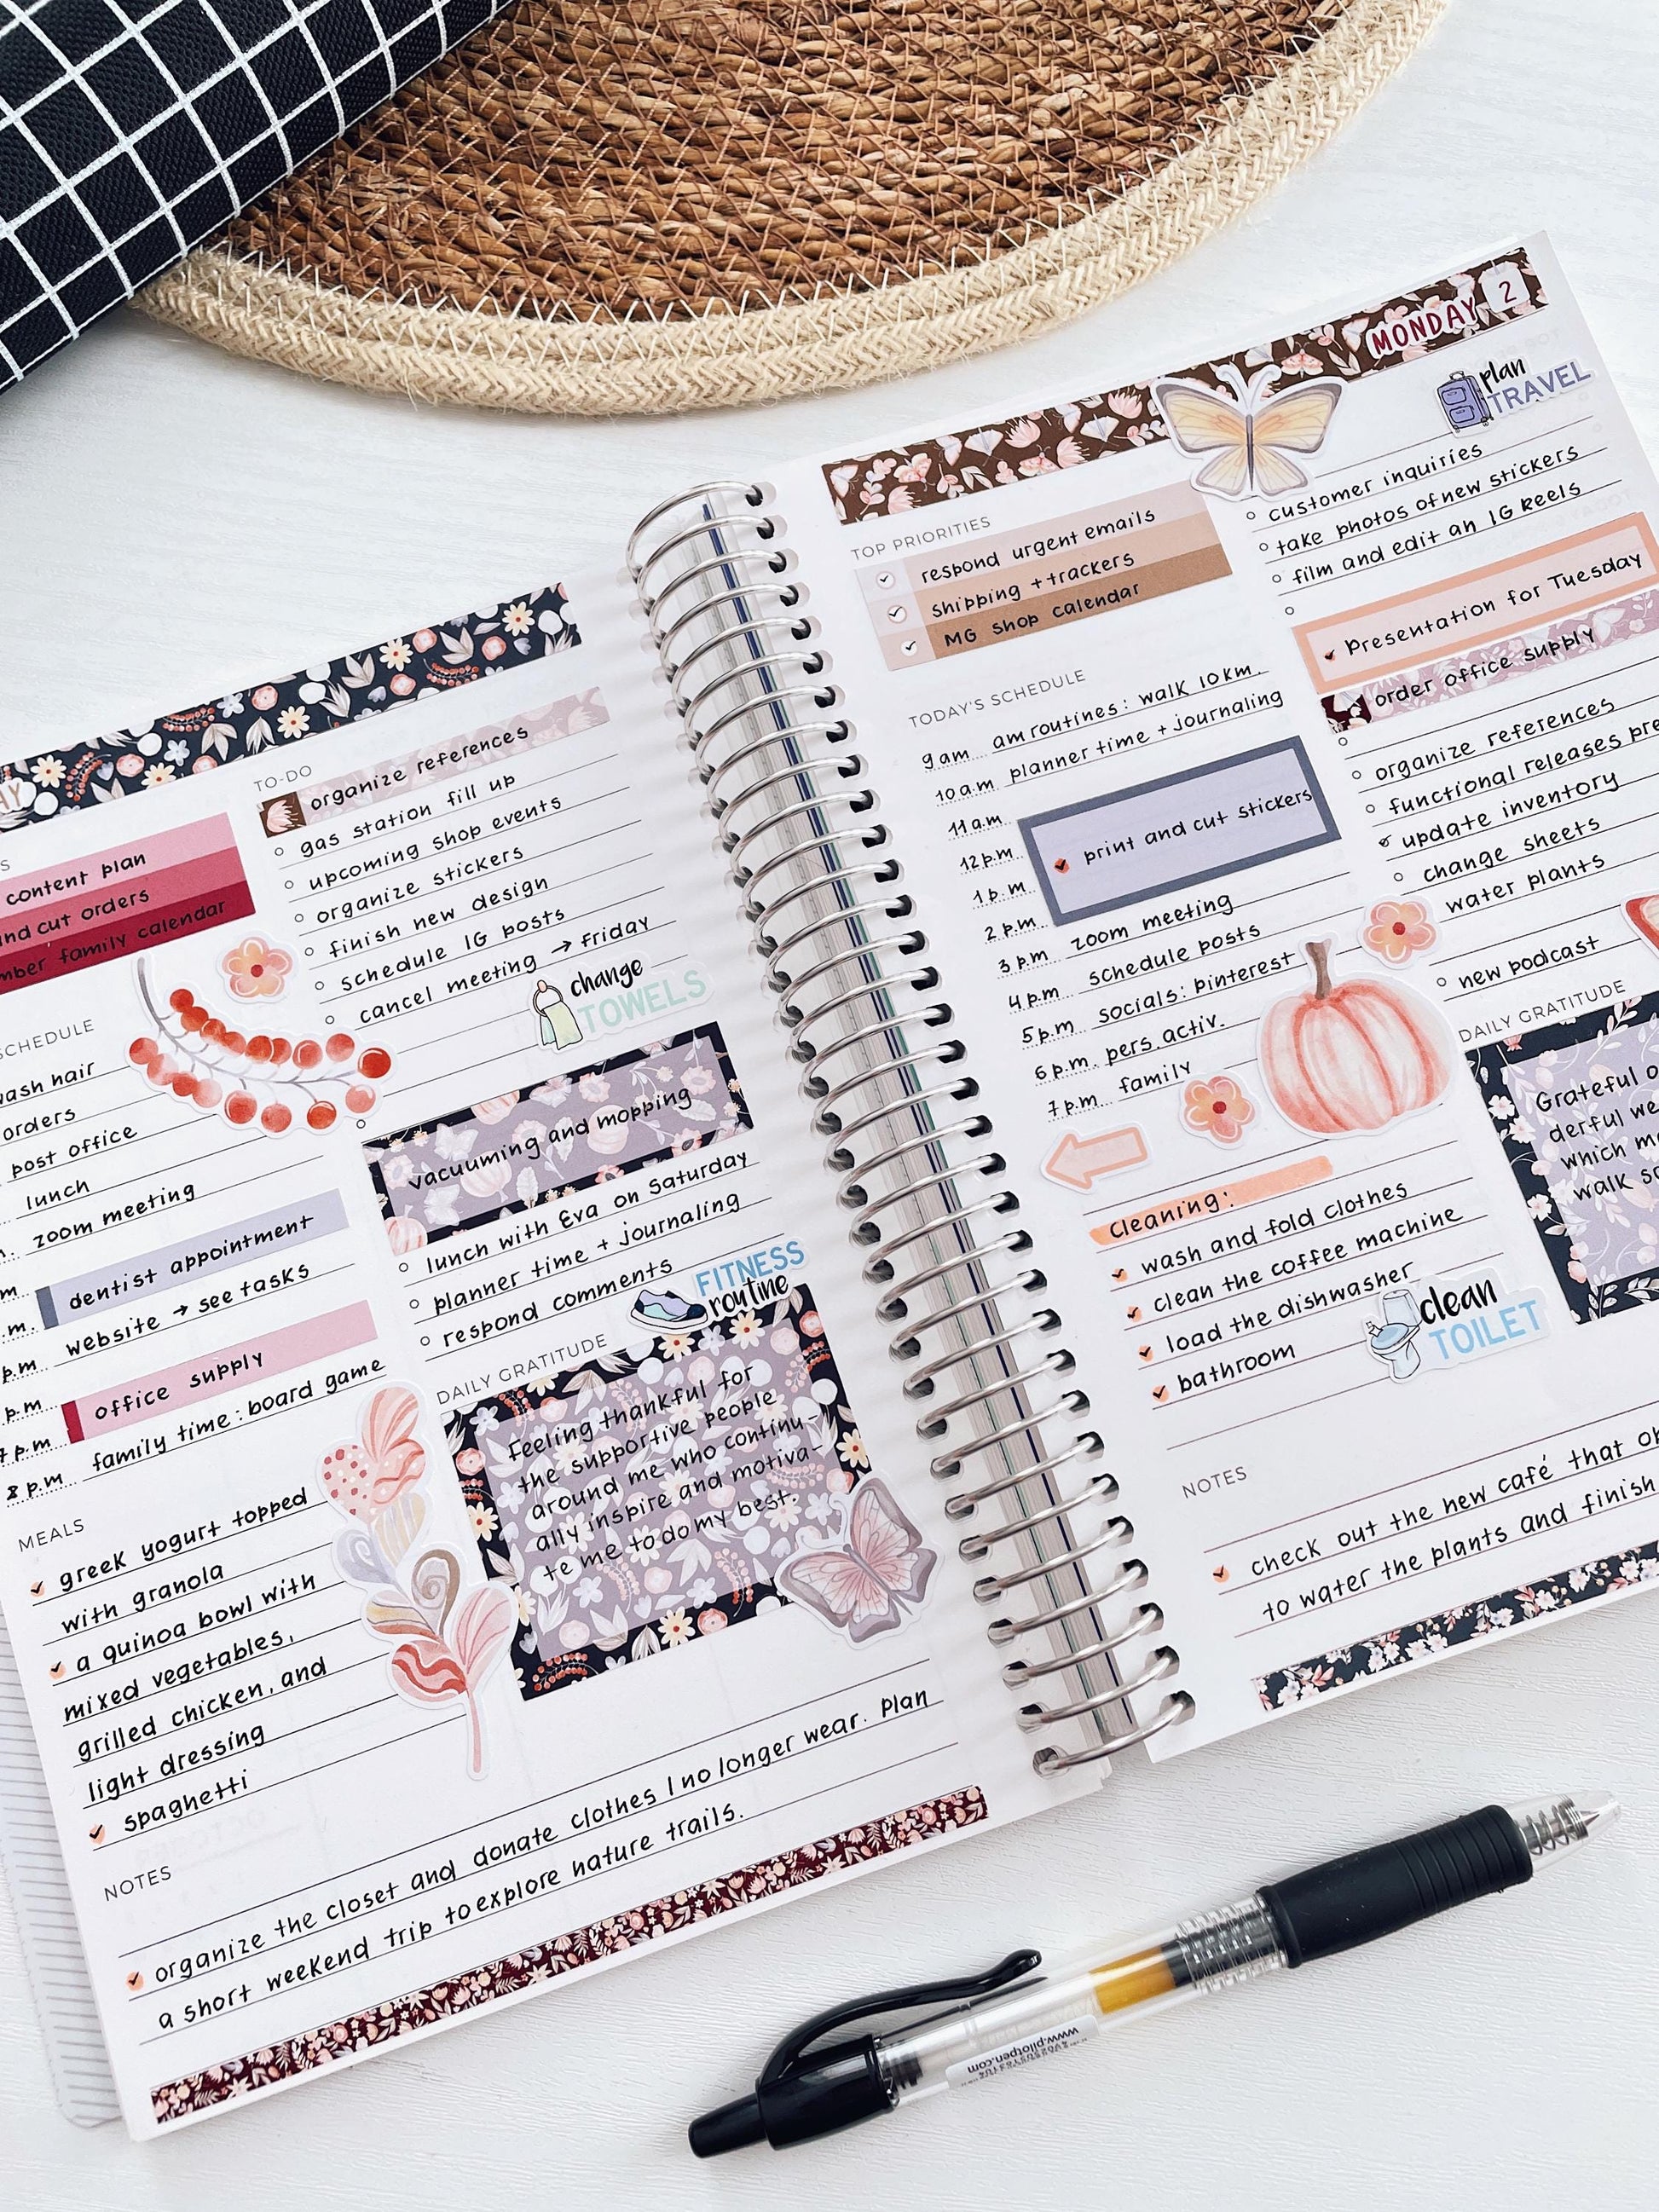 content plan
and cut orders
family calendar
SCHEDULE
wash hair
orders
post office
lunch
zoom meeting
dentist appointment
website → see tasks
pm
office supply
p.m
7 p.m
family time: board game
8 p.m.
MEALS
greek yogurt topped
with granola
a quinoa bowl with
mixed vegetables,
grilled chicken, and
light dressing
spaghetti
TO-DO
organize references
gas station fill up
upcoming shop events
organize stickers
finish new design
schedule IG posts
cancel meeting → Friday
change
TOWELS
vacuuming and mopping
lunch with Eva on Saturday
planner time + journaling
respond comments
FITNESS
routine
DAILY GRATITUDE
Feeling thankful for
the supportive people
around me who continu-
ally inspire and motiva-
te me to do my best.
NOTES
organize the closet and donate clothes I no longer wear. Plan
a short weekend trip to explore nature trails.
MONDAY 2
TOP PRIORITIES
respond urgent emails
shipping + trackers
MG shop calendar
TODAY'S SCHEDULE
9am am routines: walk 10km.
10a.m planner time + journaling
11a.m
12p.m
print and cut stickers
1p.m
2p.m zoom meeting
3p.m schedule posts
4p.m socials: pinterest
5p.m pers. activ.
6p.m. family
7p.m
Cleaning:
wash and fold clothes
clean the coffee machine
load the dishwasher
bathroom
clean
TOILET
plan
TRAVEL
customer inquiries
take photos of new stickers
film and edit an IG Reels
Presentation for Tuesday
order office supply
organize references
functional releases
update inventory
change sheets
water plants
new podcast
DAILY GRATITUDE
Grateful
derful
which
walk
NOTES
check out the new café that
to water the plants and finish
www.pilotpen.com